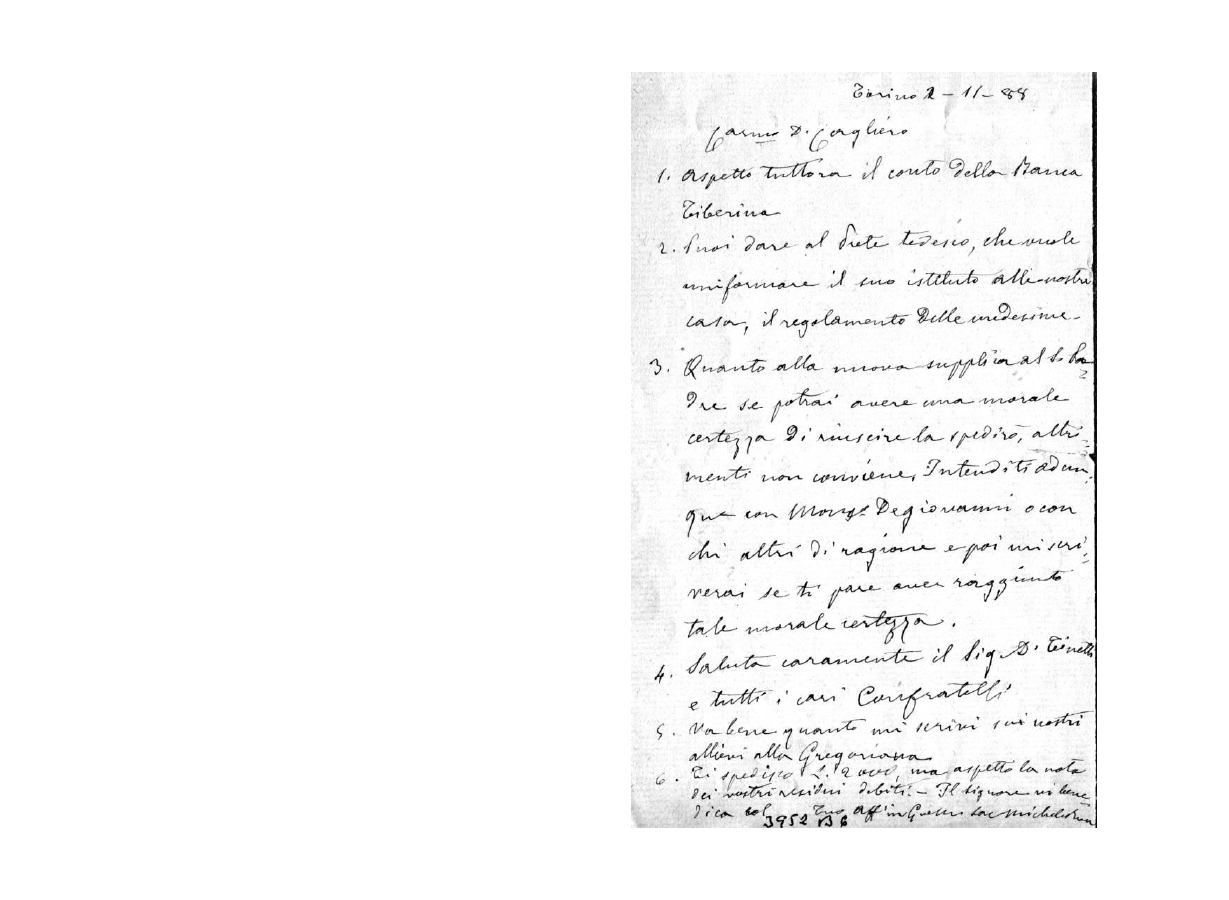 Torino 2 - 11 - 88
Carmo D. Cagliero
1. Aspetto tuttora il conto della Banca
Tiberina
2. Puoi dare al Prete tedesco, che vuole
uniformare il suo istituto alle nostre
case, il regolamento delle medesime -
3. Quanto alla nuova supplica al S. Pa=
dre se potrai avere una morale
certezza di riuscire la spedirò, altri=
menti non conviene. Intenditi adun=
que con Monsr Degiovanni o con
chi altri di ragione e poi mi scri=
verai se ti pare aver raggiunto
tale morale certezza.
4. Saluta caramente il Sig. D.
e tutti i cari Confratelli
5. Va bene quanto mi scrivi sui nostri
allievi alla Gregoriana
6. Ti spedisco L. 2000, ma aspetto la nota
dei vostri residui debiti. - Il Signore vi bene=
dica Tuo aff in G. Sac Michele Rua
3952 B 6